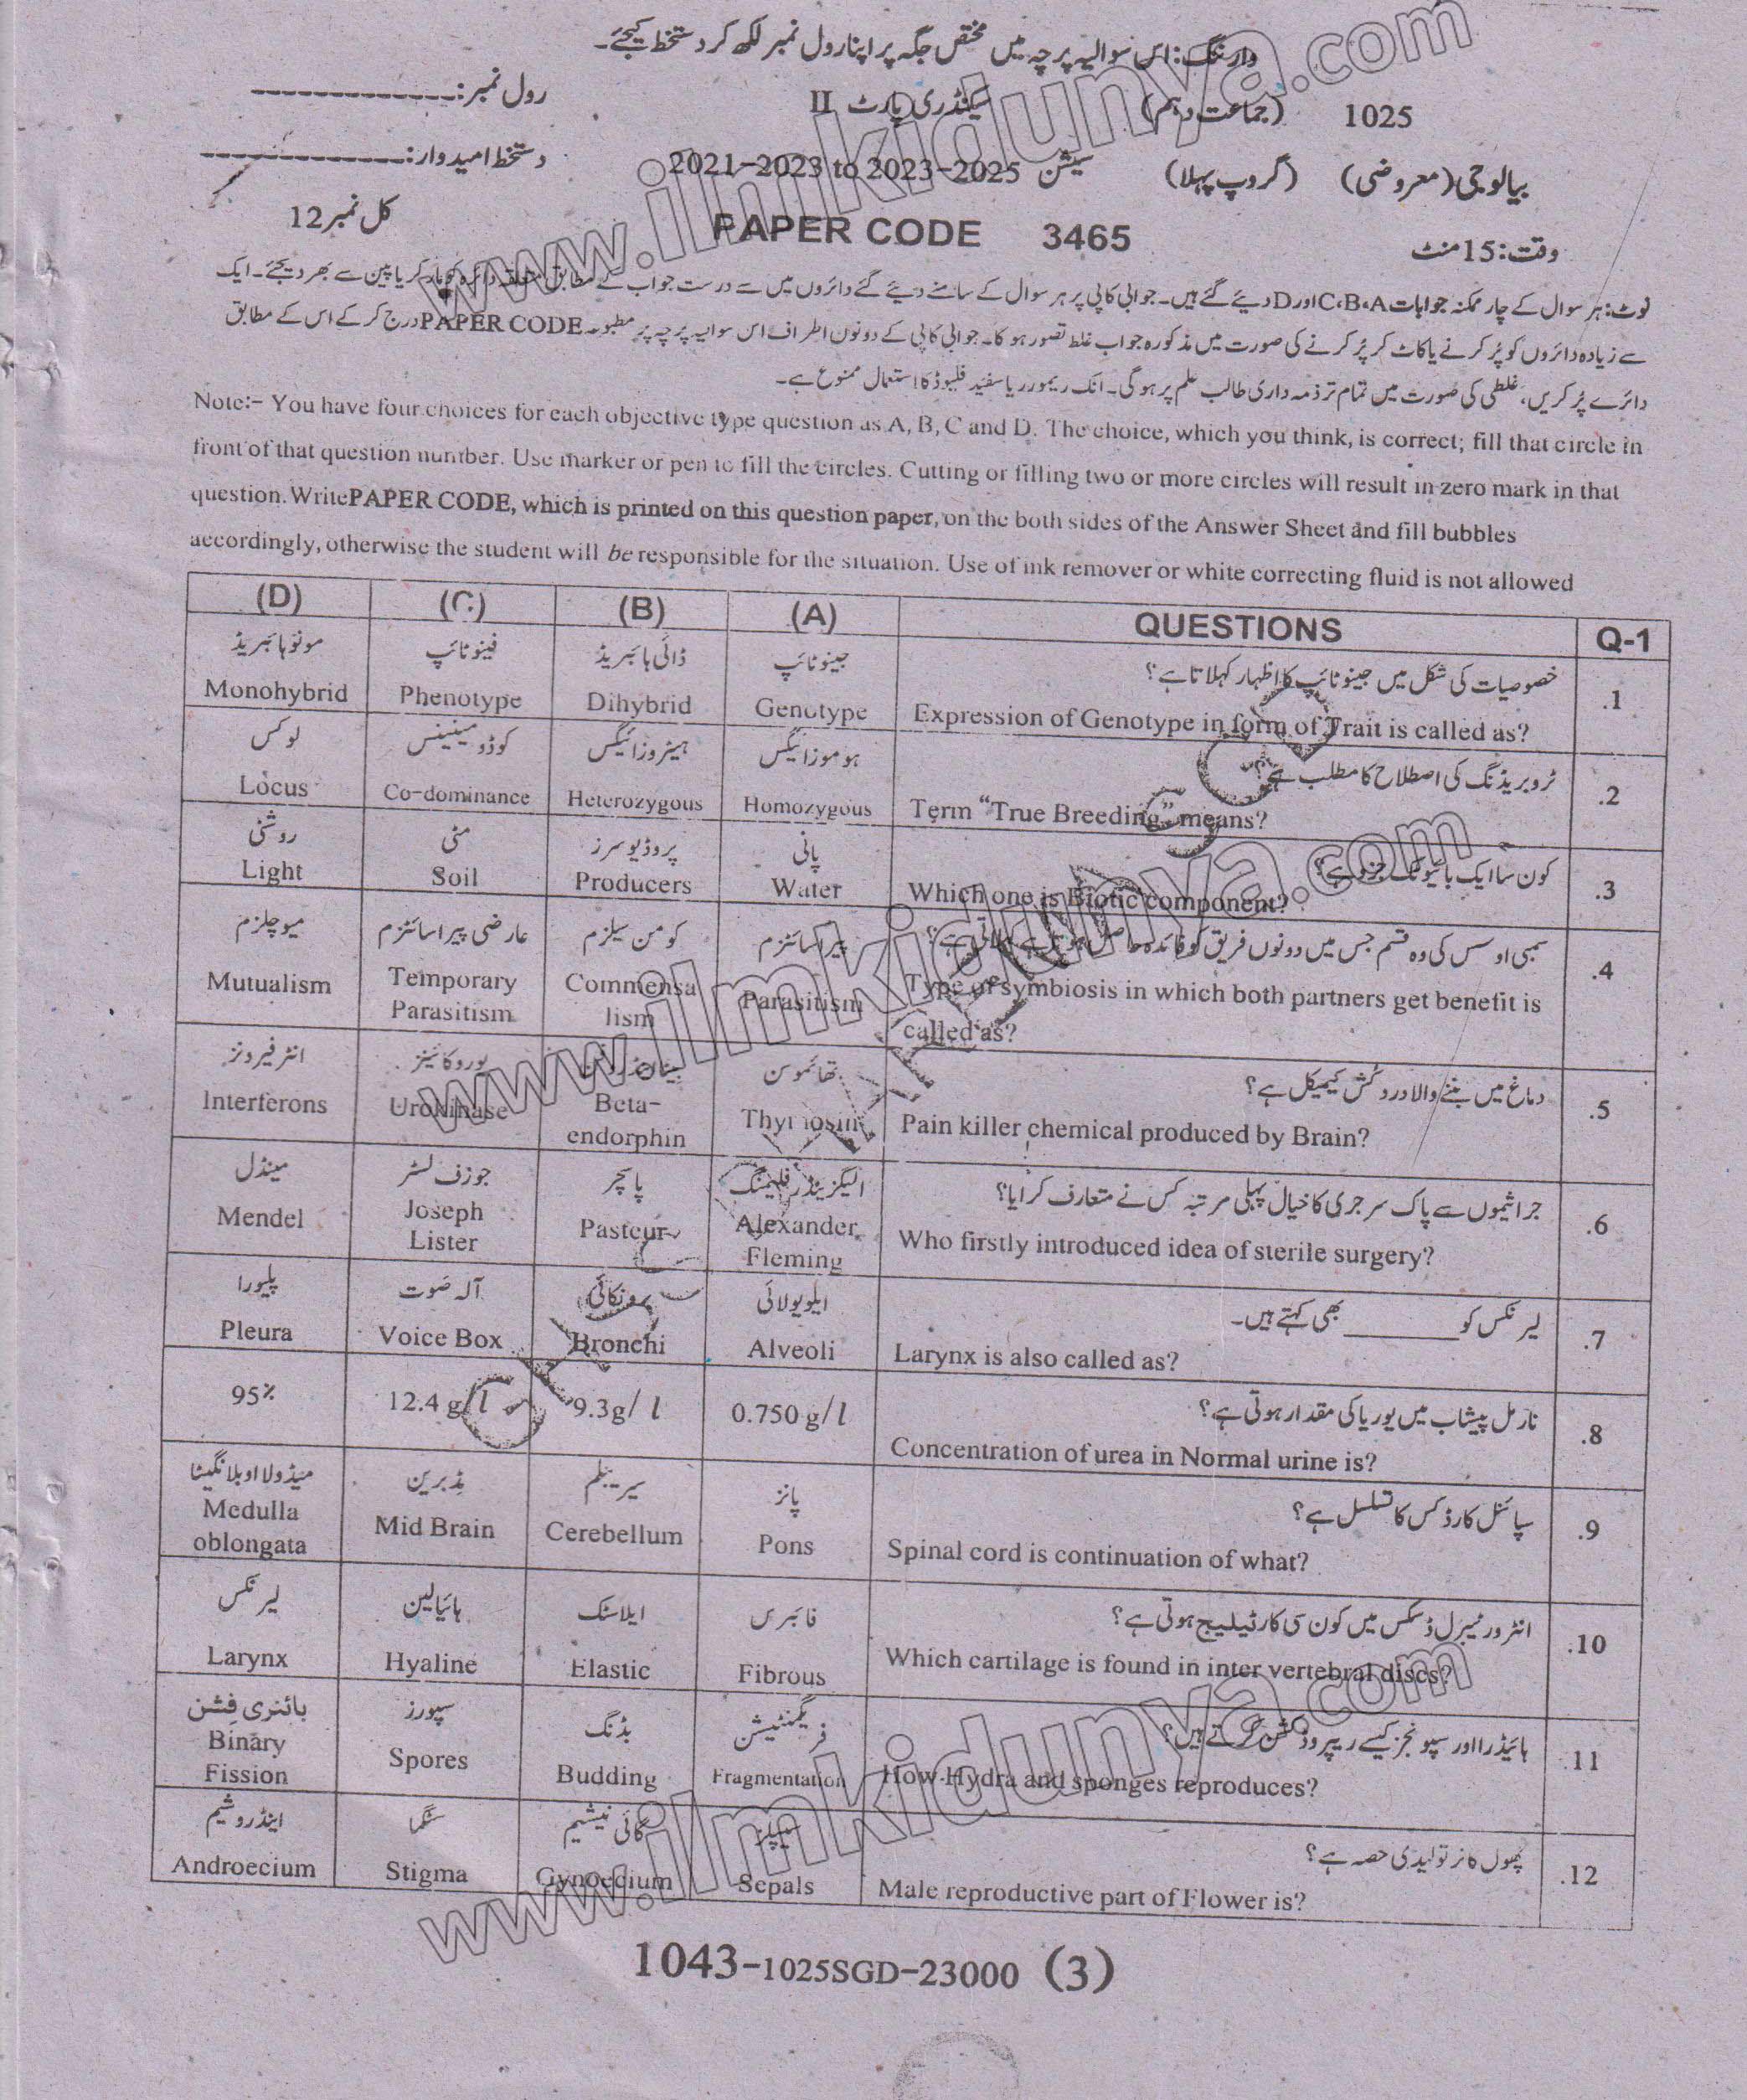 وارننگ: اس سوالیہ پرچہ میں مختص جگہ پر اپنا رول نمبر لکھ کر دستخط کیجئے۔
1025 (جماعت دہم) سیکنڈری پارٹ II رول نمبر:
بیالوجی (معروضی) (گروپ پہلا) سیشن 2021-2023 to 2023-2025 دستخط امیدوار:
وقت: 15 منٹ PAPER CODE 3465 کل نمبر 12
نوٹ: ہر سوال کے چار ممکنہ جوابات C،B،A اور D دیئے گئے ہیں۔ جوابی کاپی پر ہر سوال کے سامنے دیئے گئے دائروں میں سے درست جواب کے مطابق متعلقہ دائرہ کو مارکر یا پین سے بھر دیجئے۔ ایک
سے زیادہ دائروں کو پُر کرنے یا کاٹ کر پُر کرنے کی صورت میں مذکورہ جواب غلط تصور ہو گا۔ جوابی کاپی کے دونوں اطراف اس سوالیہ پرچہ پر مطبوعہ PAPER CODE درج کر کے اس کے مطابق
دائرے پُر کریں، غلطی کی صورت میں تمام تر ذمہ داری طالب علم پر ہو گی۔ انک ریمورر یا سفید فلیوڈ کا استعمال ممنوع ہے۔
Note:- You have four choices for each objective type question as A, B, C and D. The choice, which you think, is correct; fill that circle in
front of that question number. Use marker or pen to fill the circles. Cutting or filling two or more circles will result in zero mark in that
question. Write PAPER CODE, which is printed on this question paper, on the both sides of the Answer Sheet and fill bubbles
accordingly, otherwise the student will be responsible for the situation. Use of ink remover or white correcting fluid is not allowed
(D) (C) (B) (A) QUESTIONS Q-1
مونوہائبریڈ فینوٹائپ ڈائی ہائبریڈ جینوٹائپ خصوصیات کی شکل میں جینوٹائپ کا اظہار کہلاتا ہے؟
Monohybrid Phenotype Dihybrid Genotype Expression of Genotype in form of Trait is called as? .1
لوکس کوڈومینینس ہیٹروزائیگس ہوموزائیگس ٹروبریڈنگ کی اصطلاح کا مطلب ہے؟
Locus Co-dominance Heterozygous Homozygous Term “True Breeding” means? .2
روشنی مٹی پروڈیوسرز پانی کون سا ایک بائیوٹک جزو ہے؟
Light Soil Producers Water Which one is Biotic component? .3
میوچلزم عارضی پیراسائٹزم کومن سیلزم پیراسائٹزم سمبی اوسس کی وہ قسم جس میں دونوں فریق کو فائدہ
Mutualism Temporary Parasitism Commensalism Parasitism Type of symbiosis in which both partners get benefit is called as? .4
انٹرفیرونز یوروکائینز تھائموسن دماغ میں بننے والا درد کش کیمیکل ہے؟
Interferons Urokinase Beta-endorphin Thymosin Pain killer chemical produced by Brain? .5
مینڈل جوزف لسٹر پاسچر الیگزینڈر فلیمنگ جراثیموں سے پاک سرجری کا خیال پہلی مرتبہ کس نے متعارف کرایا؟
Mendel Joseph Lister Pasteur Alexander Fleming Who firstly introduced idea of sterile surgery? .6
پلیورا آلہ صَوت برونکائی ایلویولائی لیرنکس کو ________ بھی کہتے ہیں۔
Pleura Voice Box Bronchi Alveoli Larynx is also called as? .7
95% 12.4 g/l 9.3g/ l 0.750 g/l نارمل پیشاب میں یوریا کی مقدار ہوتی ہے؟
Concentration of urea in Normal urine is? .8
میڈولا اوبلانگیٹا مِڈبرین سیریبلم پانز سپائنل کارڈ کس کا تسلسل ہے؟
Medulla oblongata Mid Brain Cerebellum Pons Spinal cord is continuation of what? .9
لیرنکس ہائیالین ایلاسٹک فائبرس انٹرورٹیبرل ڈسکس میں کون سی کارٹیلیج ہوتی ہے؟
Larynx Hyaline Elastic Fibrous Which cartilage is found in inter vertebral discs? .10
بائنری فِشن سپورز بڈنگ فریگمنٹیشن ہائیڈرا اور سپونجز کیسے ریپروڈکشن کرتے ہیں؟
Binary Fission Spores Budding Fragmentation How Hydra and sponges reproduces? .11
اینڈروشیم سٹگما گائی نیشیم سیپلز پھول کا نر تولیدی حصہ ہے؟
Androecium Stigma Gynoecium Sepals Male reproductive part of Flower is? .12
1043-1025SGD-23000 (3)
www.ilmkidunya.com
www.ilmkidunya.com
www.ilmkidunya.com